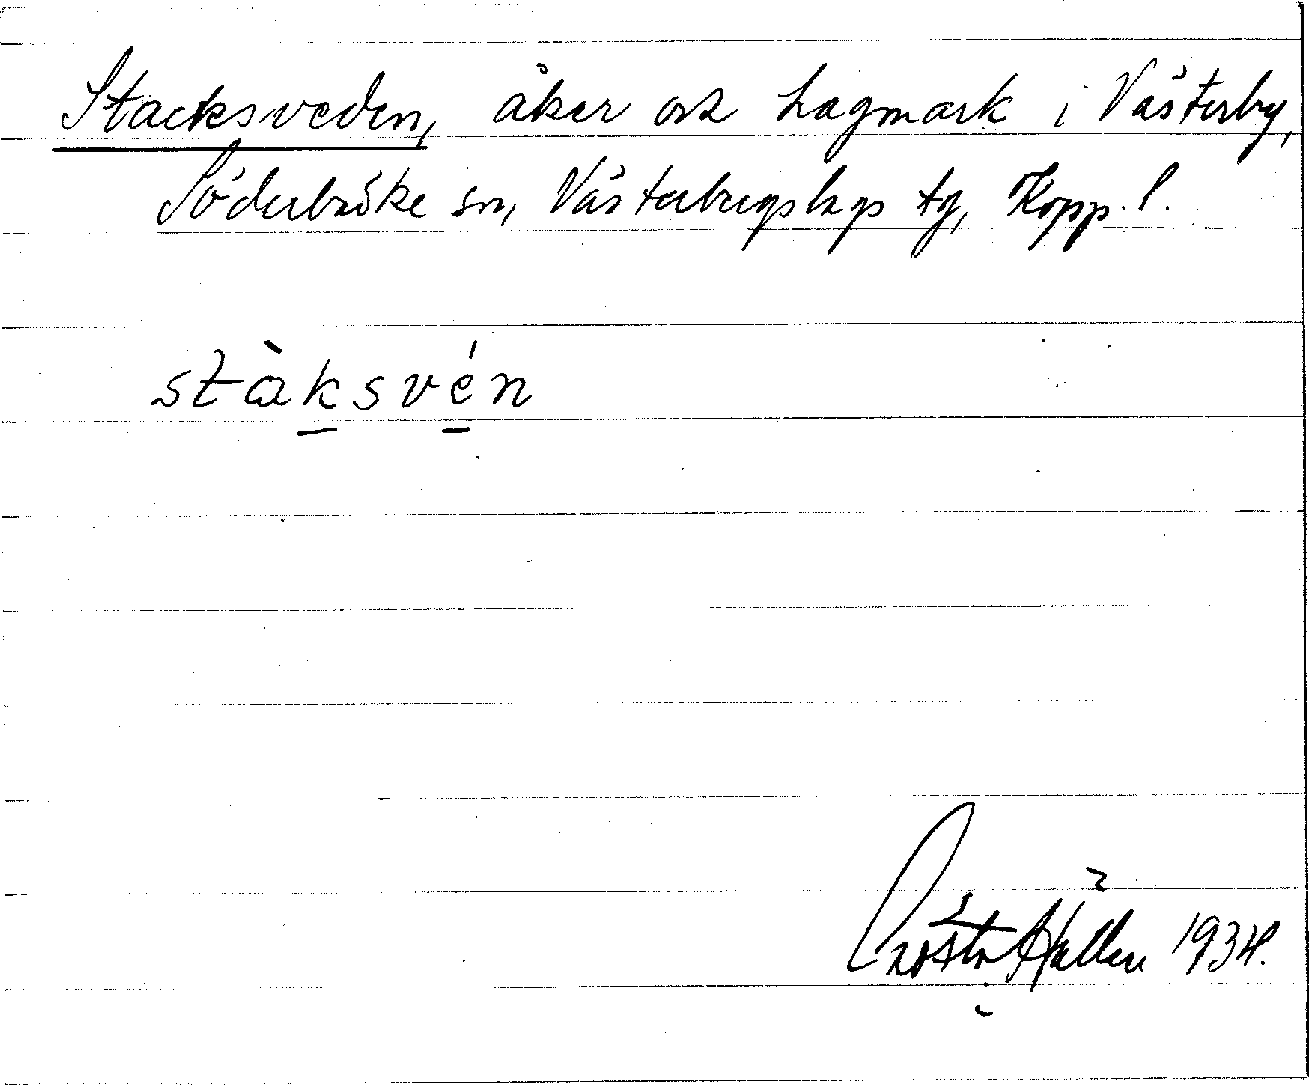 Stacksveden, åker och hagmark i Västerby,
Söderbärke sn, Västerbergslags tg, Kopp. l.
stàksvén
Hallén 1934.